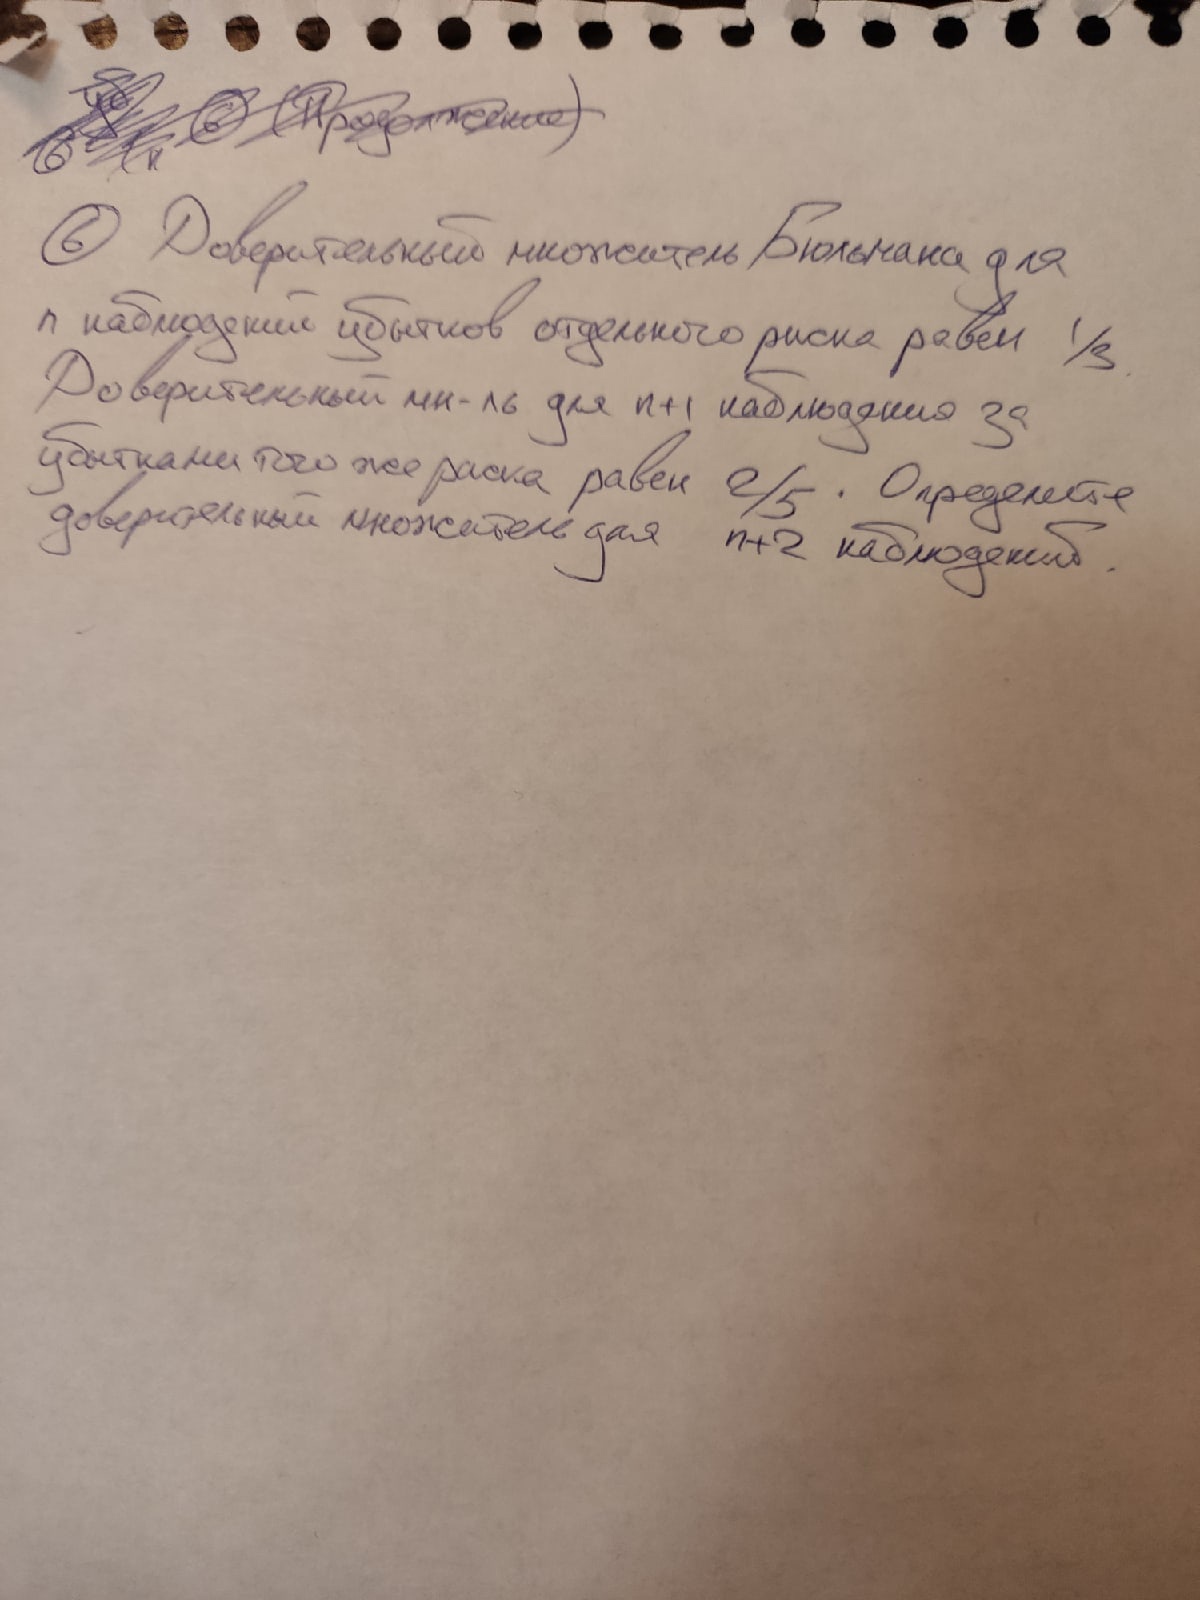 6 (Продолжение)
6 Доверительный множитель Бюльмана для
n наблюдений убытков отдельного риска равен 1/3.
Доверительный мн-ль для n+1 наблюдения за
убытками того же риска равен 2/5. Определите
доверительный множитель для n+2 наблюдений.